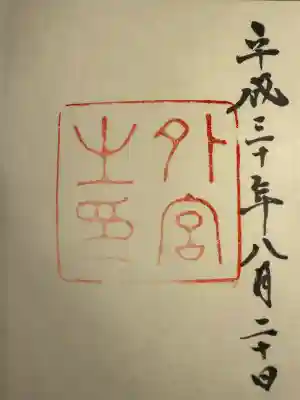 平成三十年八月二十日
外宮
之印